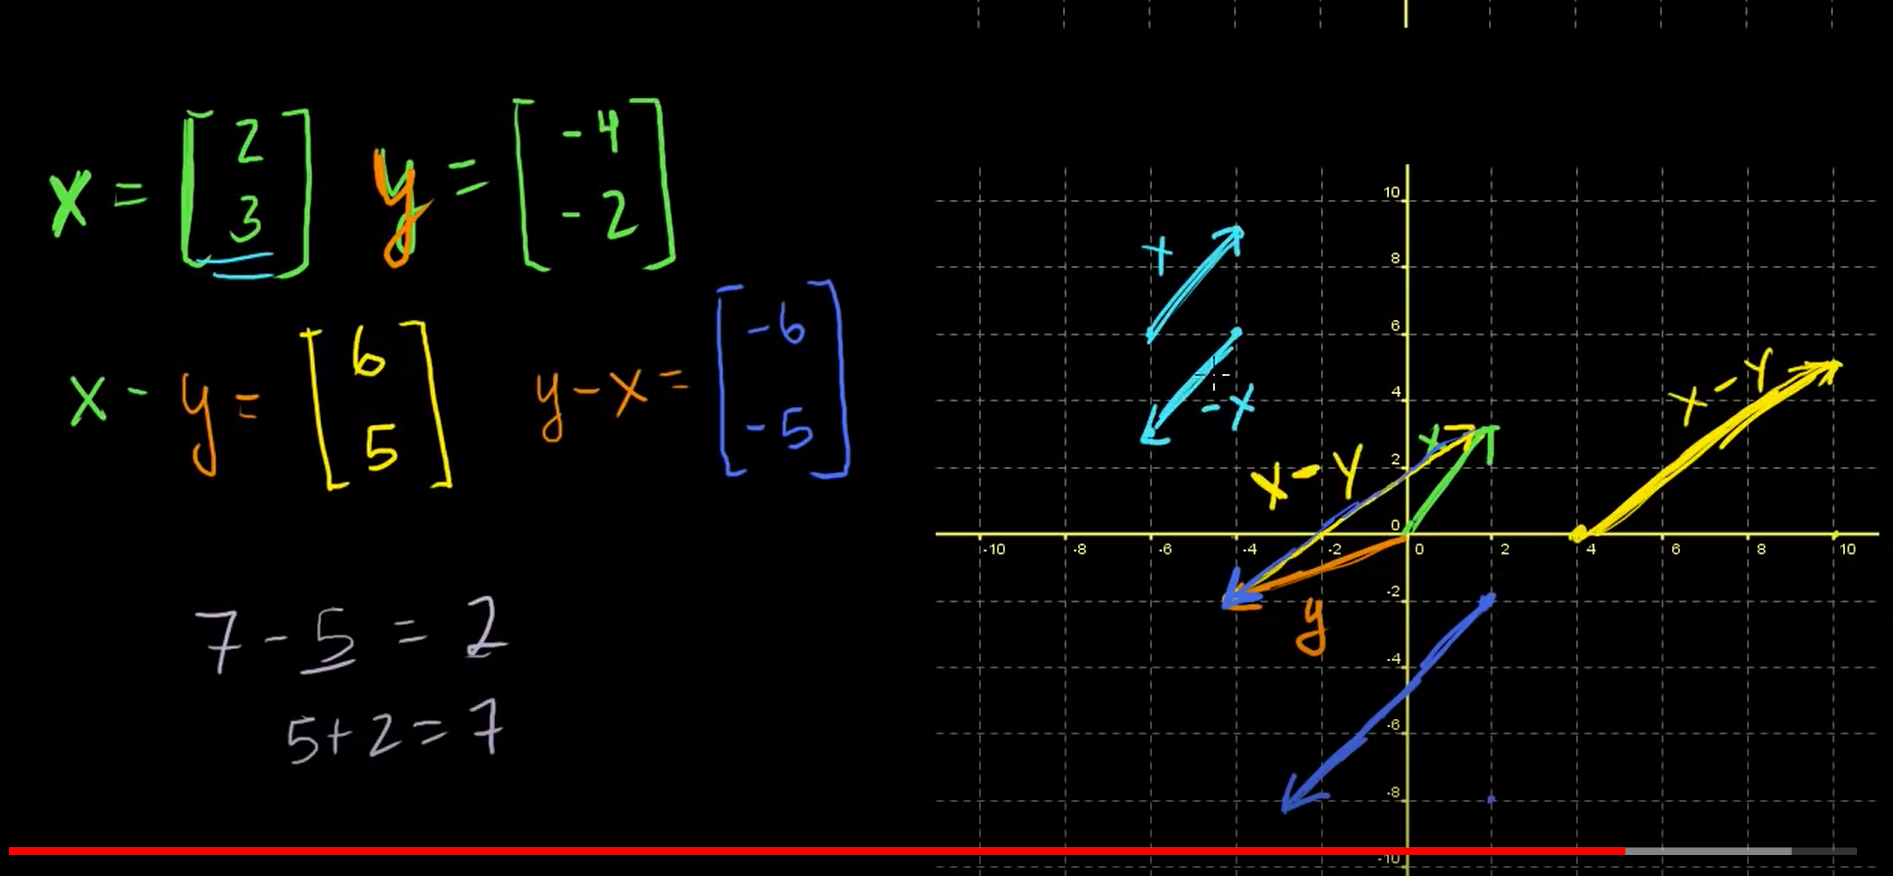 x = [2 3] y = [-4 -2]
x - y = [6 5] y - x = [-6 -5]
7 - 5 = 2
5 + 2 = 7
x
-x
x - y
x - y
x
y
10
8
6
4
2
0
-2
-4
-6
-8
-10
-10 -8 -6 -4 -2 0 2 4 6 8 10